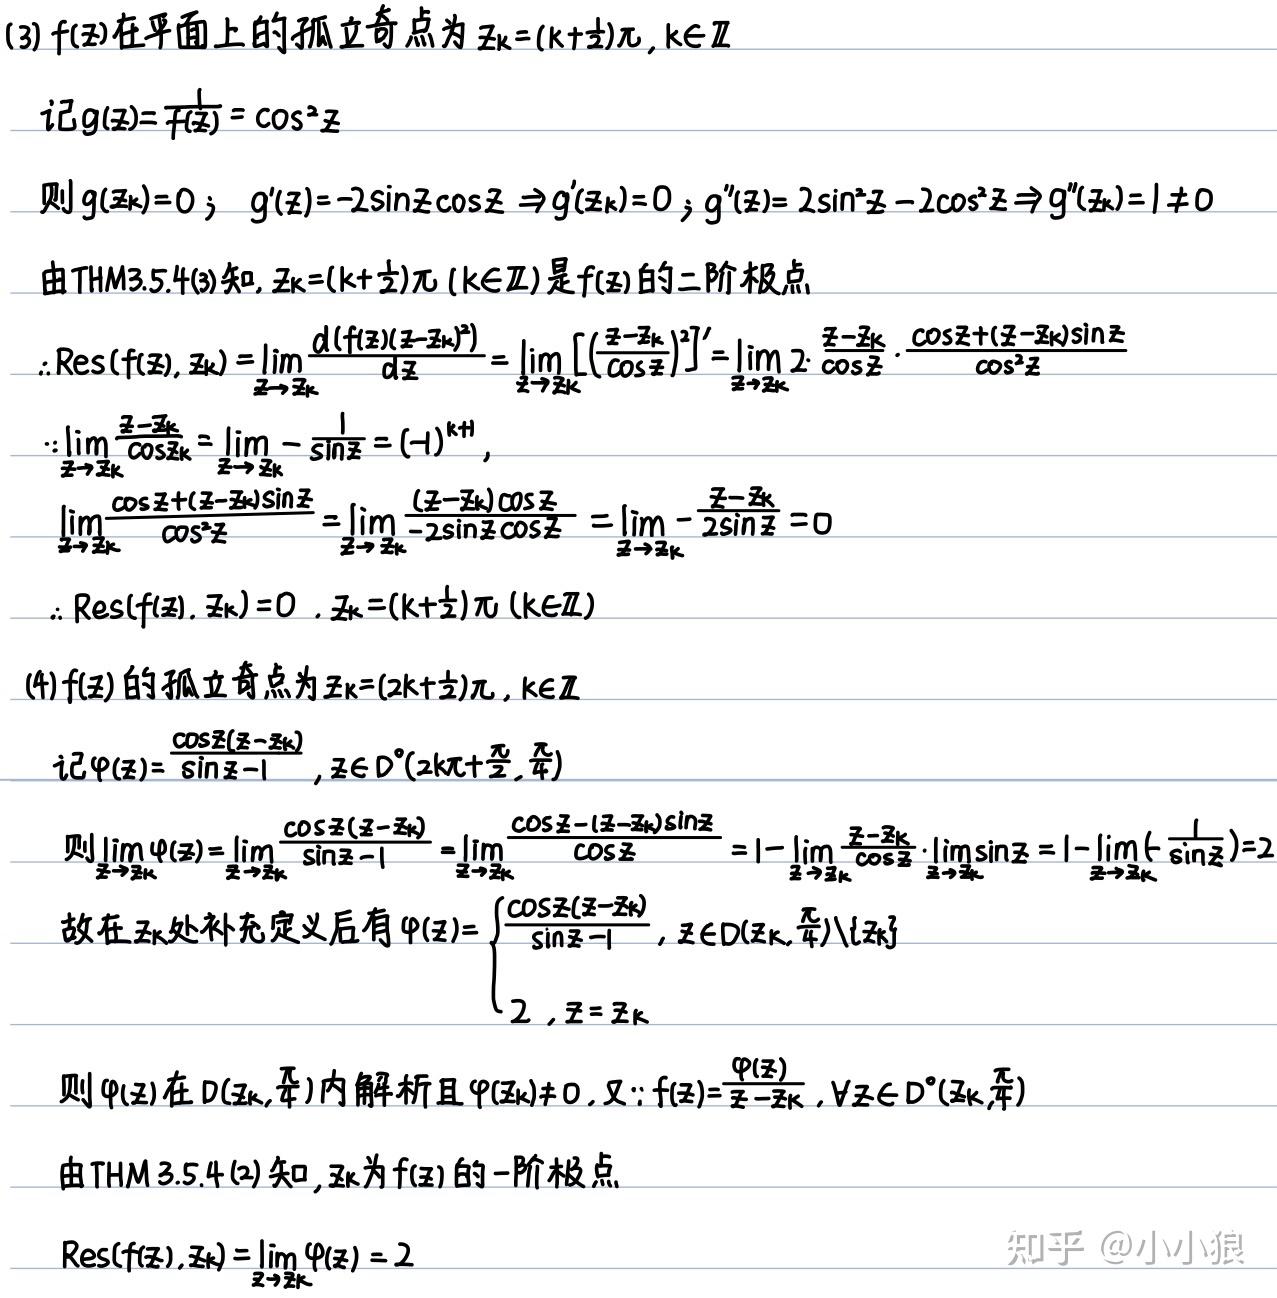 (3) f(z)在平面上的孤立奇点为 zₖ=(k+½)π, k∈ℤ
记g(z)=1/f(z) = cos²z
则 g(zₖ)=0 ; g'(z)=-2sinzcosz ⇒g'(zₖ)=0 ; g''(z)= 2sin²z-2cos²z⇒g''(zₖ)=1≠0
由THM3.5.4(3)知, zₖ=(k+½)π (k∈ℤ)是f(z)的二阶极点
∴Res(f(z), zₖ)=lim_{z→zₖ} d(f(z)(z-zₖ)²)/dz = lim_{z→zₖ} [((z-zₖ)/cosz)²]' = lim_{z→zₖ} 2· (z-zₖ)/cosz · (cosz+(z-zₖ)sinz)/cos²z
∵lim_{z→zₖ} (z-zₖ)/coszₖ = lim_{z→zₖ} - 1/sinz = (-1)^{k+1},
lim_{z→zₖ} (cosz+(z-zₖ)sinz)/cos²z = lim_{z→zₖ} (z-zₖ)cosz/(-2sinzcosz) = lim_{z→zₖ} - (z-zₖ)/(2sinz) = 0
∴ Res(f(z), zₖ)=0 , zₖ=(k+½)π (k∈ℤ)
(4) f(z)的孤立奇点为zₖ=(2k+½)π, k∈ℤ
记φ(z)= cosz(z-zₖ)/(sinz-1) , z∈D°(2kπ+π/2, π/4)
则lim_{z→zₖ} φ(z)=lim_{z→zₖ} cosz(z-zₖ)/(sinz-1) = lim_{z→zₖ} (cosz-(z-zₖ)sinz)/cosz = 1-lim_{z→zₖ} (z-zₖ)/cosz · lim_{z→zₖ} sinz = 1-lim_{z→zₖ} (-1/sinz)=2
故在zₖ处补充定义后有φ(z)= { cosz(z-zₖ)/(sinz-1) , z∈D(zₖ, π/4)\{zₖ}
2 , z=zₖ
则φ(z)在D(zₖ, π/4)内解析且φ(zₖ)≠0, 又∵f(z)= φ(z)/(z-zₖ) , ∀z∈D°(zₖ, π/4)
由THM 3.5.4(2)知, zₖ为f(z)的一阶极点
Res(f(z), zₖ)=lim_{z→zₖ} φ(z) = 2
知乎 @小小狼